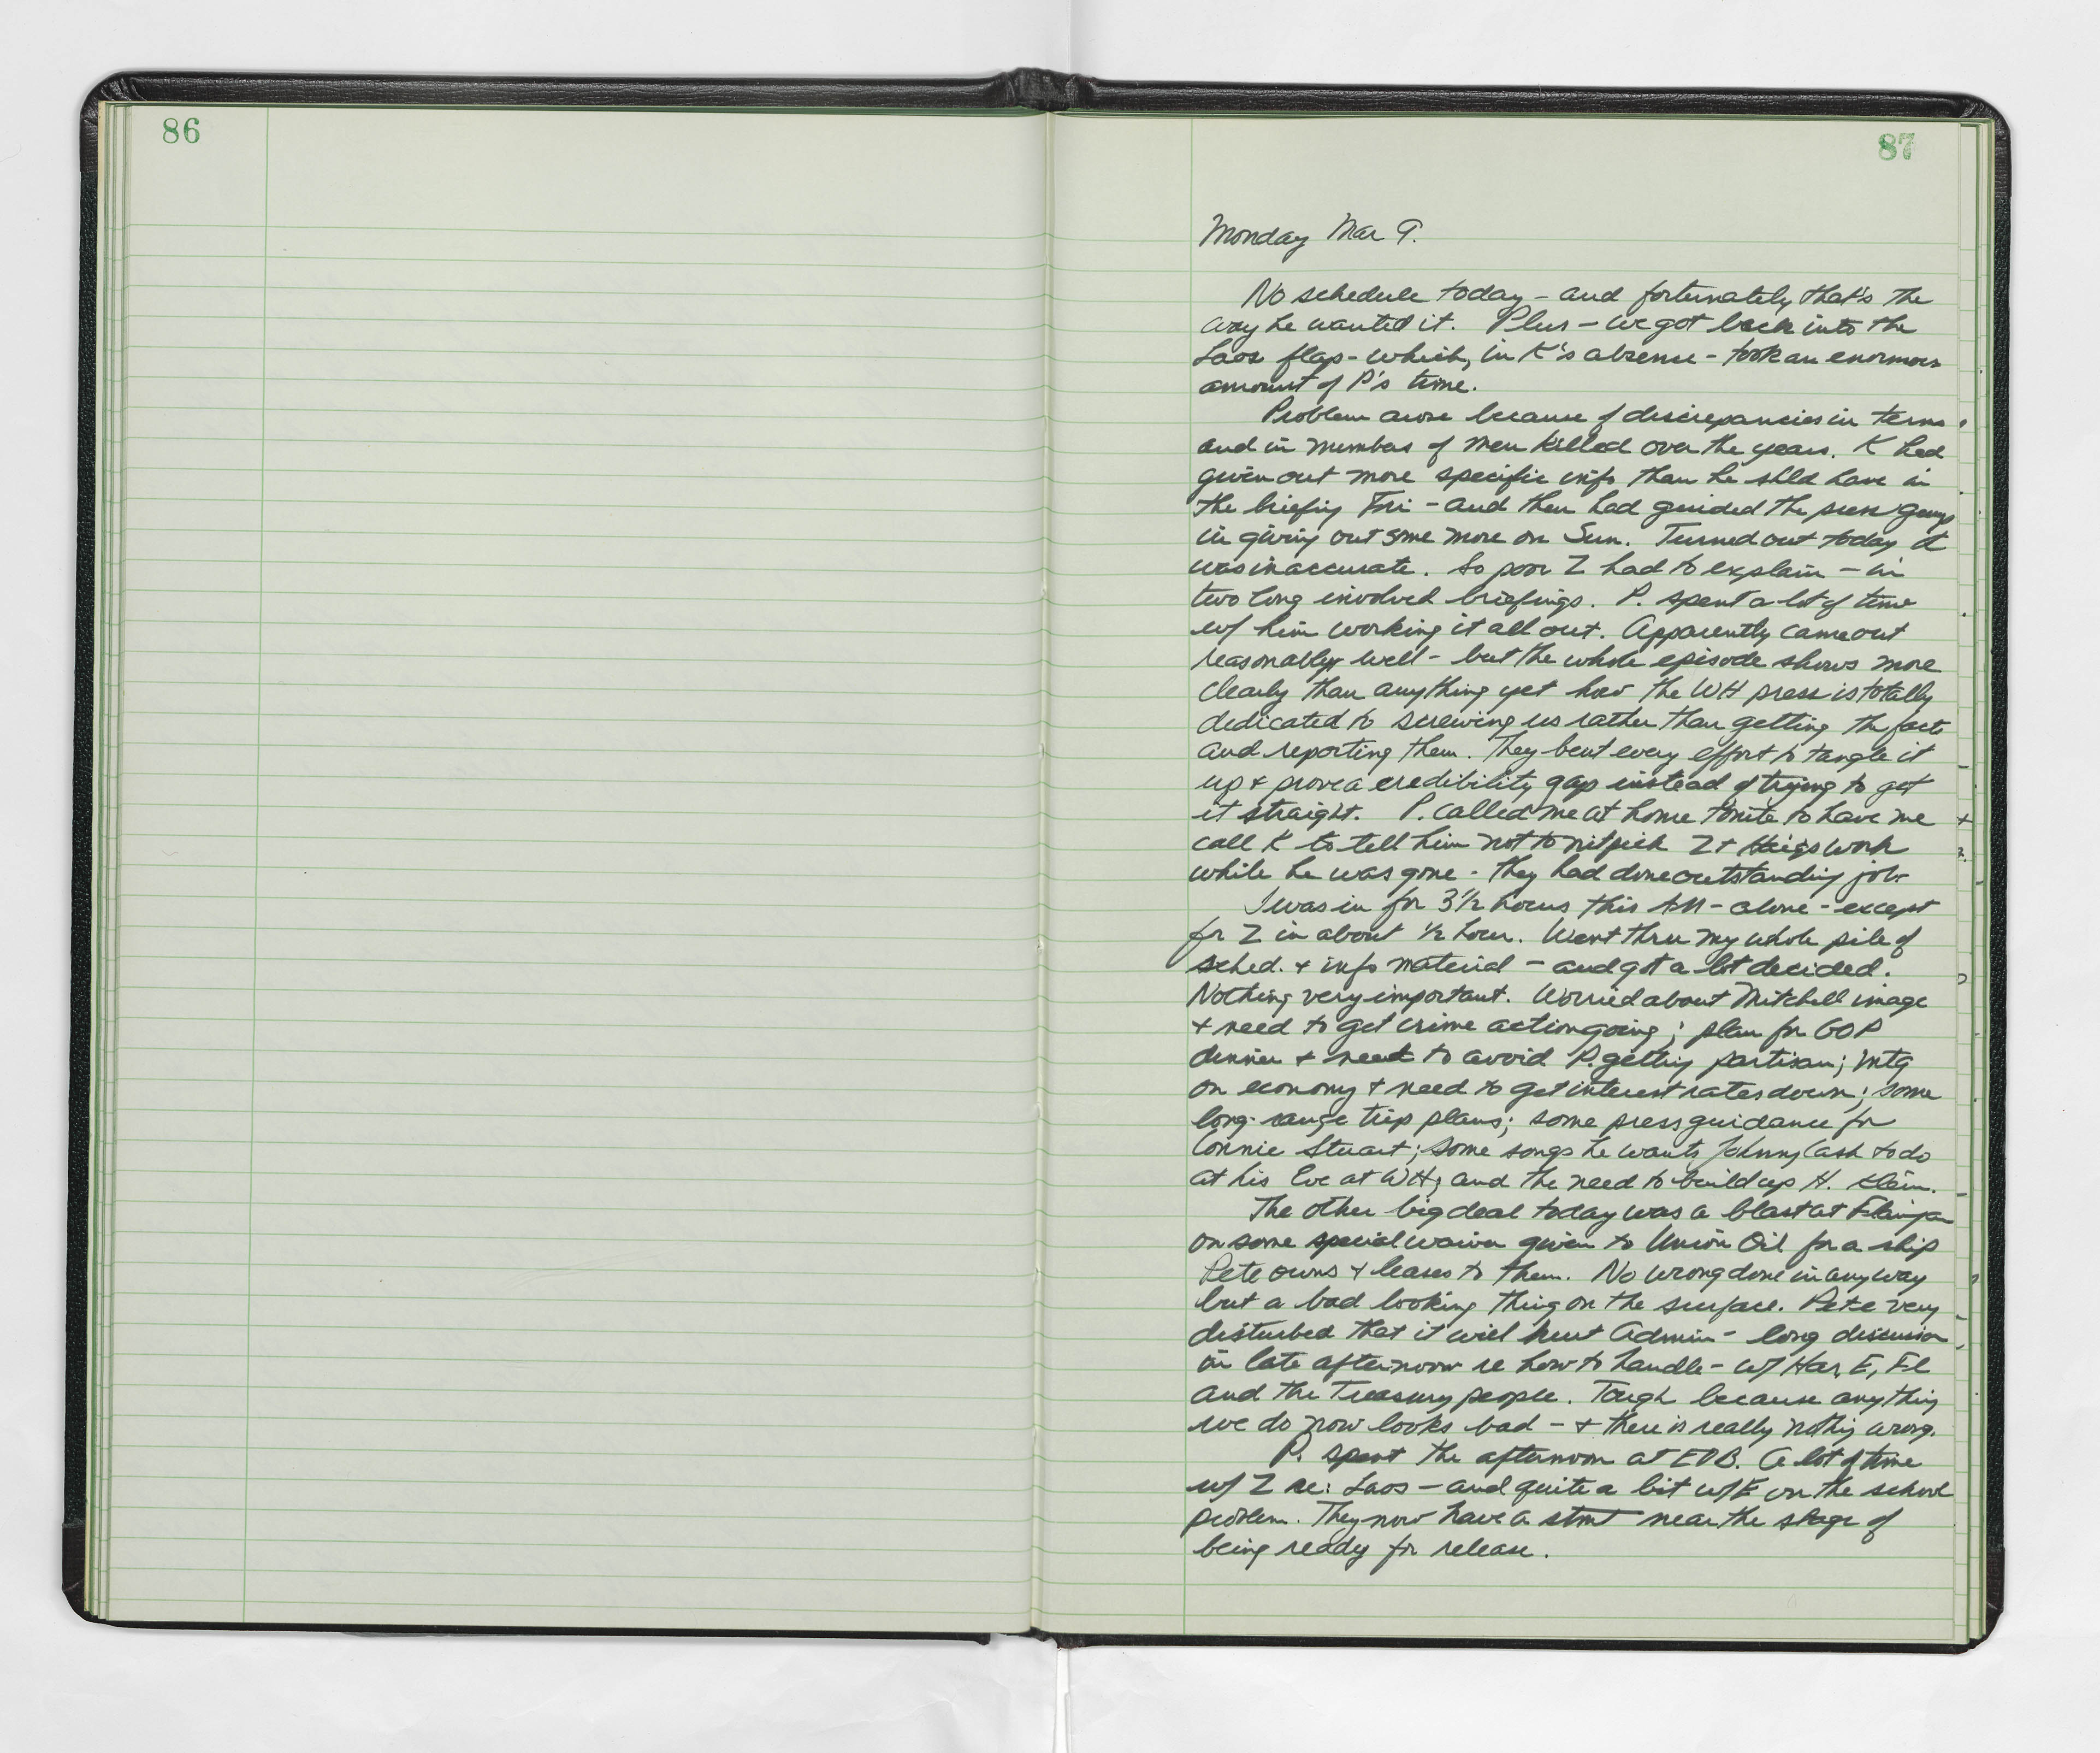 86
87
Monday Mar 9.
No schedule today - and fortunately that's the
way he wanted it. Plus - we got back into the
Laos flap - which, in K's absence - took an enormous
amount of P's time.
Problem arose because of discrepancies in terms
and in numbers of men killed over the years. K had
given out more specific info than he shld have in
the briefing Fri - and then had guided the press guys
in giving out some more on Sun. Turned out today it
was inaccurate. So poor Z had to explain - in
two long involved briefings. P. spent a lot of time
w/ him working it all out. Apparently came out
reasonably well - but the whole episode shows more
clearly than anything yet how the WH press is totally
dedicated to screwing us rather than getting the facts
and reporting them. They bent every effort to tangle it
up + prove a credibility gap instead of trying to get
it straight. P. called me at home tonite to have me
call K to tell him not to nitpick Z + Haigs work
while he was gone - they had done outstanding job.
I was in for 3 1/2 hours this AM - alone - except
for Z in about 1/2 hour. Went thru my whole pile of
sched. + info material - and got a lot decided.
Nothing very important. Worried about Mitchell image
+ need to get crime action going; plan for GOP
dinner + need to avoid P. getting partisan; mtg
on economy + need to get interest rates down; some
long-range trip plans; some press guidance for
Connie Stuart; some songs he wants Johnny Cash to do
at his Eve at WH; and the need to build up H. Klein.
The other big deal today was a blast at Flanigan
on some special waiver given to Union Oil for a ship
Pete owns + leases to them. No wrong done in any way
but a bad looking thing on the surface. Pete very
disturbed that it will hurt Admin - long discussion
in late afternoon re how to handle - w/ Har, E, Fl
and the Treasury people. Tough because anything
we do now looks bad - + there is really nothing wrong.
P. spent the afternoon at EOB. A lot of time
w/ Z re: Laos - and quite a bit w/E on the school
problem. They now have a stmt near the stage of
being ready for release.